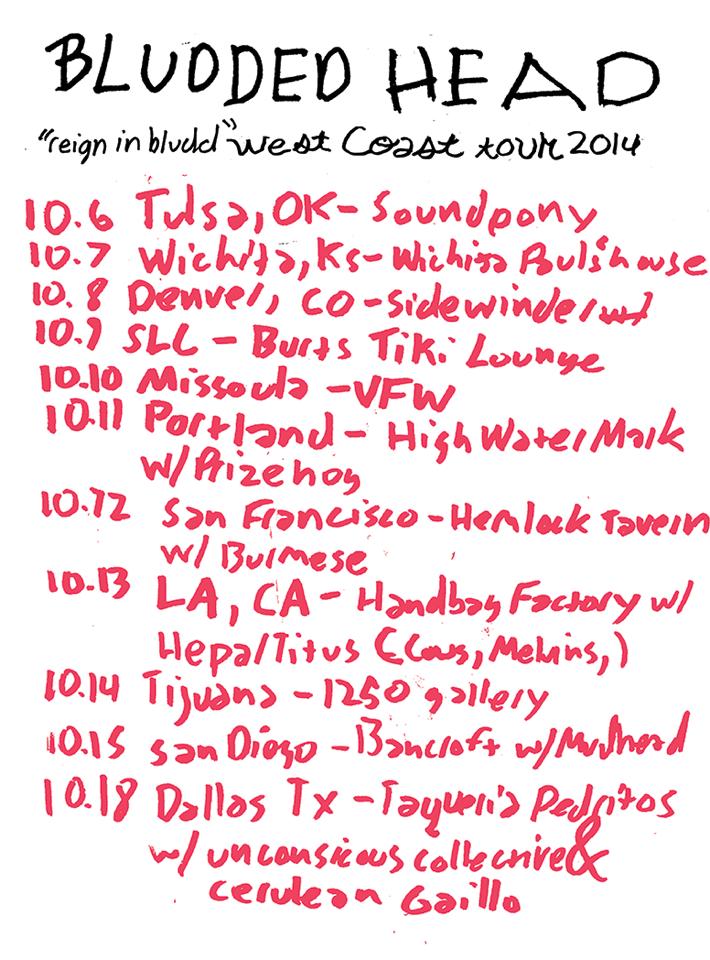 BLUDDED HEAD
"reign in bludd" west Coast tour 2014
10.6 Tulsa, OK - Soundpony
10.7 Wichita, KS - Wichita Paul's house
10.8 Denver, CO - Sidewinder
10.9 SLC - Burts Tiki Lounge
10.10 Missoula - VFW
10.11 Portland - High Water Mark
w/ Prizehog
10.12 San Francisco - Hemlock Tavern
w/ Burmese
10.13 LA, CA - Handbag Factory w/
Hepa/Titus (Cows, Melvins,)
10.14 Tijuana - 1250 gallery
10.15 San Diego - Bancroft w/
10.18 Dallas Tx - Taqueria Pedritos
w/ unconsicous collective &
cerulean Gaillo